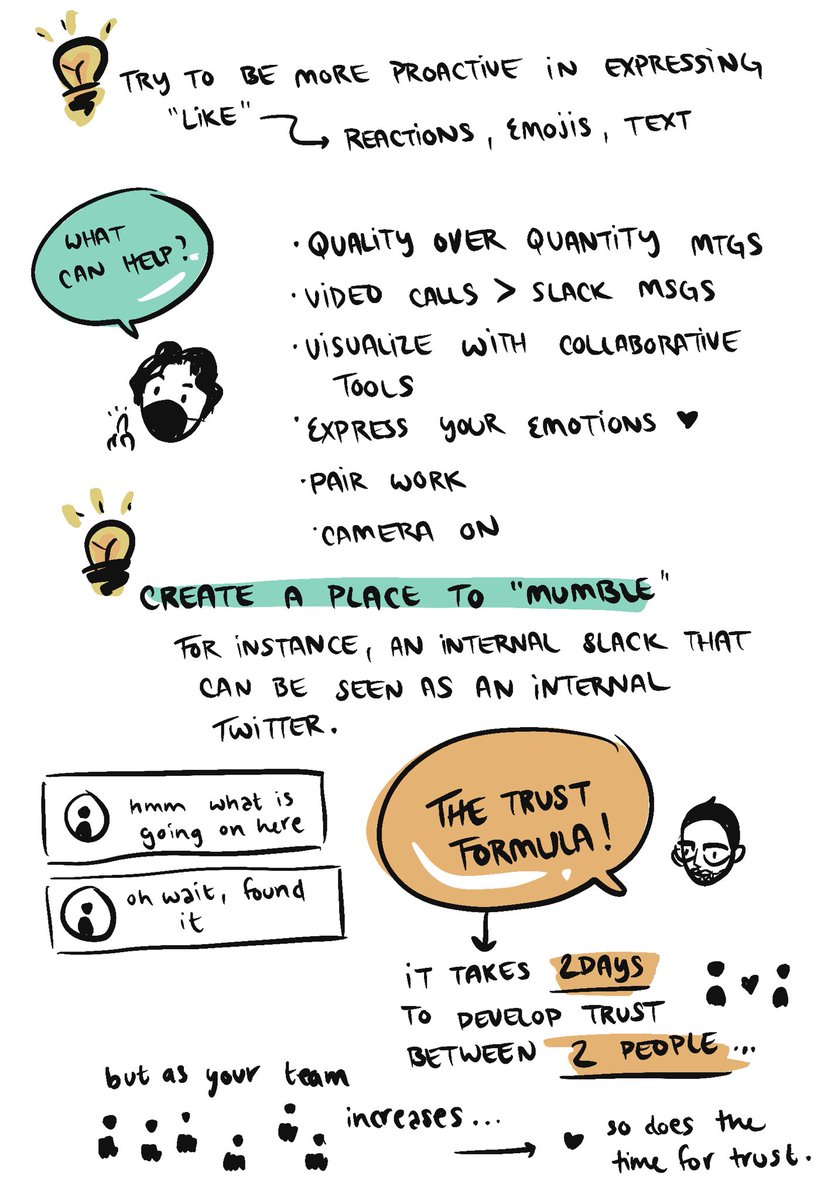 TRY TO BE MORE PROACTIVE IN EXPRESSING
"LIKE" → REACTIONS, EMOJIS, TEXT
WHAT
CAN HELP?
· QUALITY OVER QUANTITY MTGS
· VIDEO CALLS > SLACK MSGS
· VISUALIZE WITH COLLABORATIVE
TOOLS
· EXPRESS YOUR EMOTIONS ♥
· PAIR WORK
· CAMERA ON
CREATE A PLACE TO "MUMBLE"
FOR INSTANCE, AN INTERNAL SLACK THAT
CAN BE SEEN AS AN INTERNAL
TWITTER.
hmm what is
going on here
oh wait, found
it
THE TRUST
FORMULA!
IT TAKES 2DAYS
TO DEVELOP TRUST
BETWEEN 2 PEOPLE...
but as your team
increases...
so does the
time for trust.